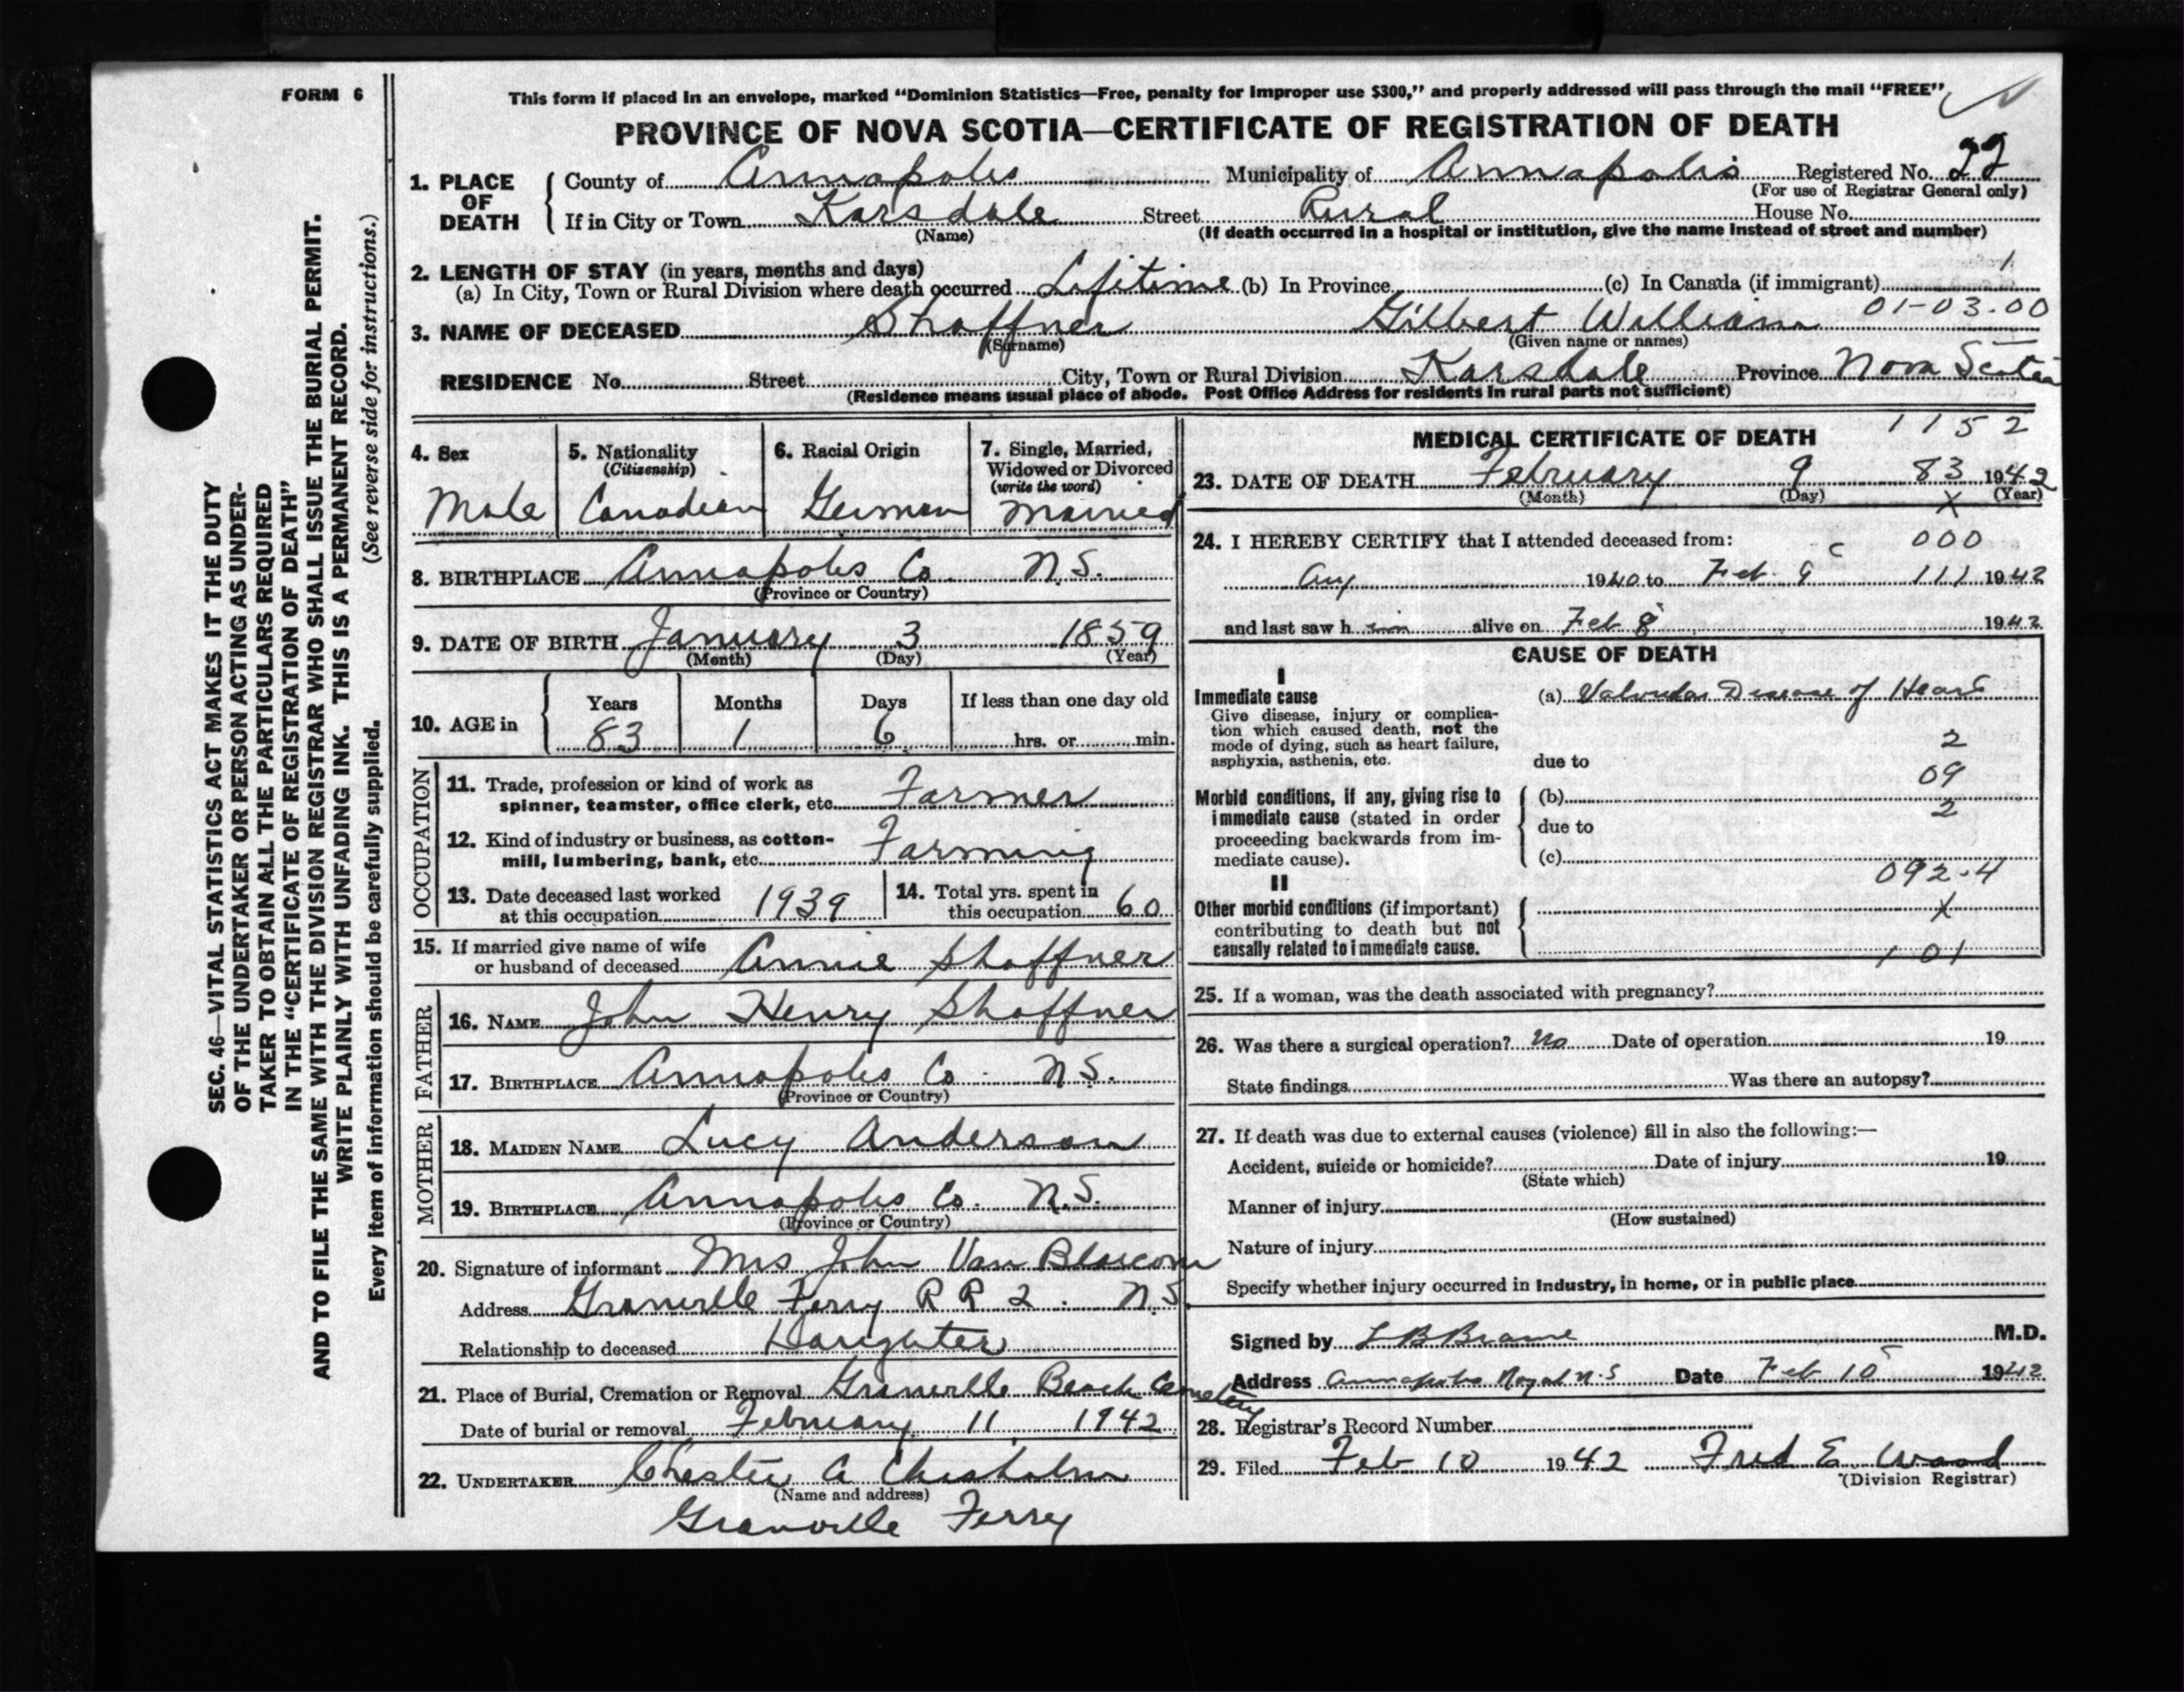 FORM 6
This form if placed in an envelope, marked "Dominion Statistics—Free, penalty for improper use $300," and properly addressed will pass through the mail "FREE"
PROVINCE OF NOVA SCOTIA—CERTIFICATE OF REGISTRATION OF DEATH
1. PLACE OF DEATH
County of Annapolis Municipality of Annapolis Registered No. 22
(For use of Registrar General only)
If in City or Town Karsdale Street Rural House No.
(Name) (If death occurred in a hospital or institution, give the name instead of street and number)
2. LENGTH OF STAY (in years, months and days) 1
(a) In City, Town or Rural Division where death occurred Lifetime (b) In Province (c) In Canada (if immigrant)
3. NAME OF DECEASED Shaffner Gilbert William 01-03.00
(Surname) (Given name or names)
RESIDENCE No. Street City, Town or Rural Division Karsdale Province Nova Scotia
(Residence means usual place of abode. Post Office Address for residents in rural parts not sufficient)
4. Sex
Male
5. Nationality
(Citizenship)
Canadian
6. Racial Origin
German
7. Single, Married,
Widowed or Divorced
(write the word)
Married
8. BIRTHPLACE Annapolis Co. N.S.
(Province or Country)
9. DATE OF BIRTH January 3 1859
(Month) (Day) (Year)
10. AGE in
Years Months Days If less than one day old
83 1 6 hrs. or min.
OCCUPATION
11. Trade, profession or kind of work as
spinner, teamster, office clerk, etc. Farmer
12. Kind of industry or business, as cotton-
mill, lumbering, bank, etc. Farming
13. Date deceased last worked
at this occupation 1939
14. Total yrs. spent in
this occupation 60
15. If married give name of wife
or husband of deceased Annie Shaffner
FATHER
16. NAME John Henry Shaffner
17. BIRTHPLACE Annapolis Co. N.S.
(Province or Country)
MOTHER
18. MAIDEN NAME Lucy Anderson
19. BIRTHPLACE Annapolis Co. N.S.
(Province or Country)
20. Signature of informant Mrs John Van Blarcom
Address Granville Ferry R R 2. N.S.
Relationship to deceased Daughter
21. Place of Burial, Cremation or Removal Granville Beach Cemetery
Date of burial or removal February 11 1942
22. UNDERTAKER Chester A Chisholm
(Name and address)
Granville Ferry
1152
MEDICAL CERTIFICATE OF DEATH
23. DATE OF DEATH February 9 83 1942
(Month) (Day) (Year)
X
24. I HEREBY CERTIFY that I attended deceased from: 000
c
Aug 1940 to Feb. 9 111 1942
and last saw him alive on Feb 8 1942
CAUSE OF DEATH
I
Immediate cause
Give disease, injury or complica-
tion which caused death, not the
mode of dying, such as heart failure,
asphyxia, asthenia, etc.
(a) Valvular Disease of Heart
2
due to
09
Morbid conditions, if any, giving rise to
immediate cause (stated in order
proceeding backwards from im-
mediate cause).
(b)
2
due to
(c)
092.4
II
Other morbid conditions (if important)
contributing to death but not
causally related to immediate cause.
X
101
25. If a woman, was the death associated with pregnancy?
26. Was there a surgical operation? No Date of operation 19
State findings Was there an autopsy?
27. If death was due to external causes (violence) fill in also the following:—
Accident, suicide or homicide? Date of injury 19
(State which)
Manner of injury
(How sustained)
Nature of injury
Specify whether injury occurred in Industry, in home, or in public place
Signed by L B Braine M.D.
Address Annapolis Royal N.S Date Feb 10 1942
28. Registrar's Record Number
29. Filed Feb 10 1942 Fred E. Wood
(Division Registrar)
SEC. 46—VITAL STATISTICS ACT MAKES IT THE DUTY
OF THE UNDERTAKER OR PERSON ACTING AS UNDER-
TAKER TO OBTAIN ALL THE PARTICULARS REQUIRED
IN THE "CERTIFICATE OF REGISTRATION OF DEATH"
AND TO FILE THE SAME WITH THE DIVISION REGISTRAR WHO SHALL ISSUE THE BURIAL PERMIT.
WRITE PLAINLY WITH UNFADING INK. THIS IS A PERMANENT RECORD.
Every item of information should be carefully supplied. (See reverse side for instructions.)